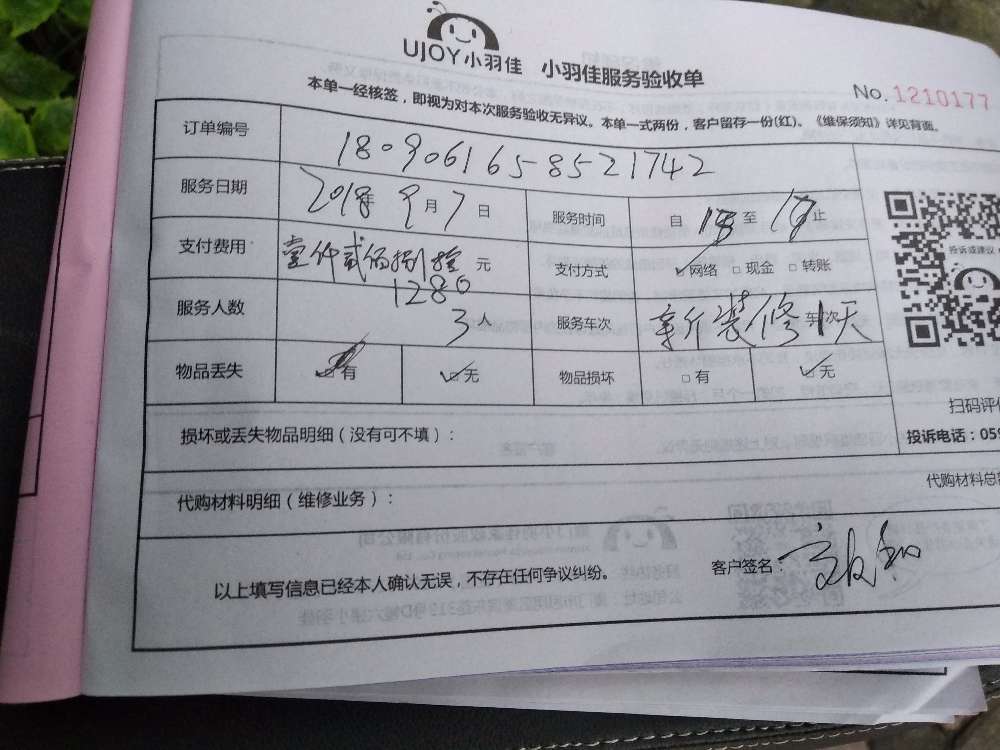 UJOY小羽佳 小羽佳服务验收单
No. 1210177
本单一经核签，即视为对本次服务验收无异议。本单一式两份，客户留存一份(红)。《维保须知》详见背面。
订单编号 1809061658521742
服务日期 2018年 9月 7日 服务时间 自 至 止
支付费用 壹仟贰佰捌拾 元 支付方式 网络 现金 转账
1280
服务人数 3人 服务车次 新装修 1天
物品丢失 有 无 物品损坏 有 无
投诉或建议
扫码评
投诉电话：059
损坏或丢失物品明细（没有可不填）：
代购材料明细（维修业务）： 代购材料总
以上填写信息已经本人确认无误，不存在任何争议纠纷。 客户签名：